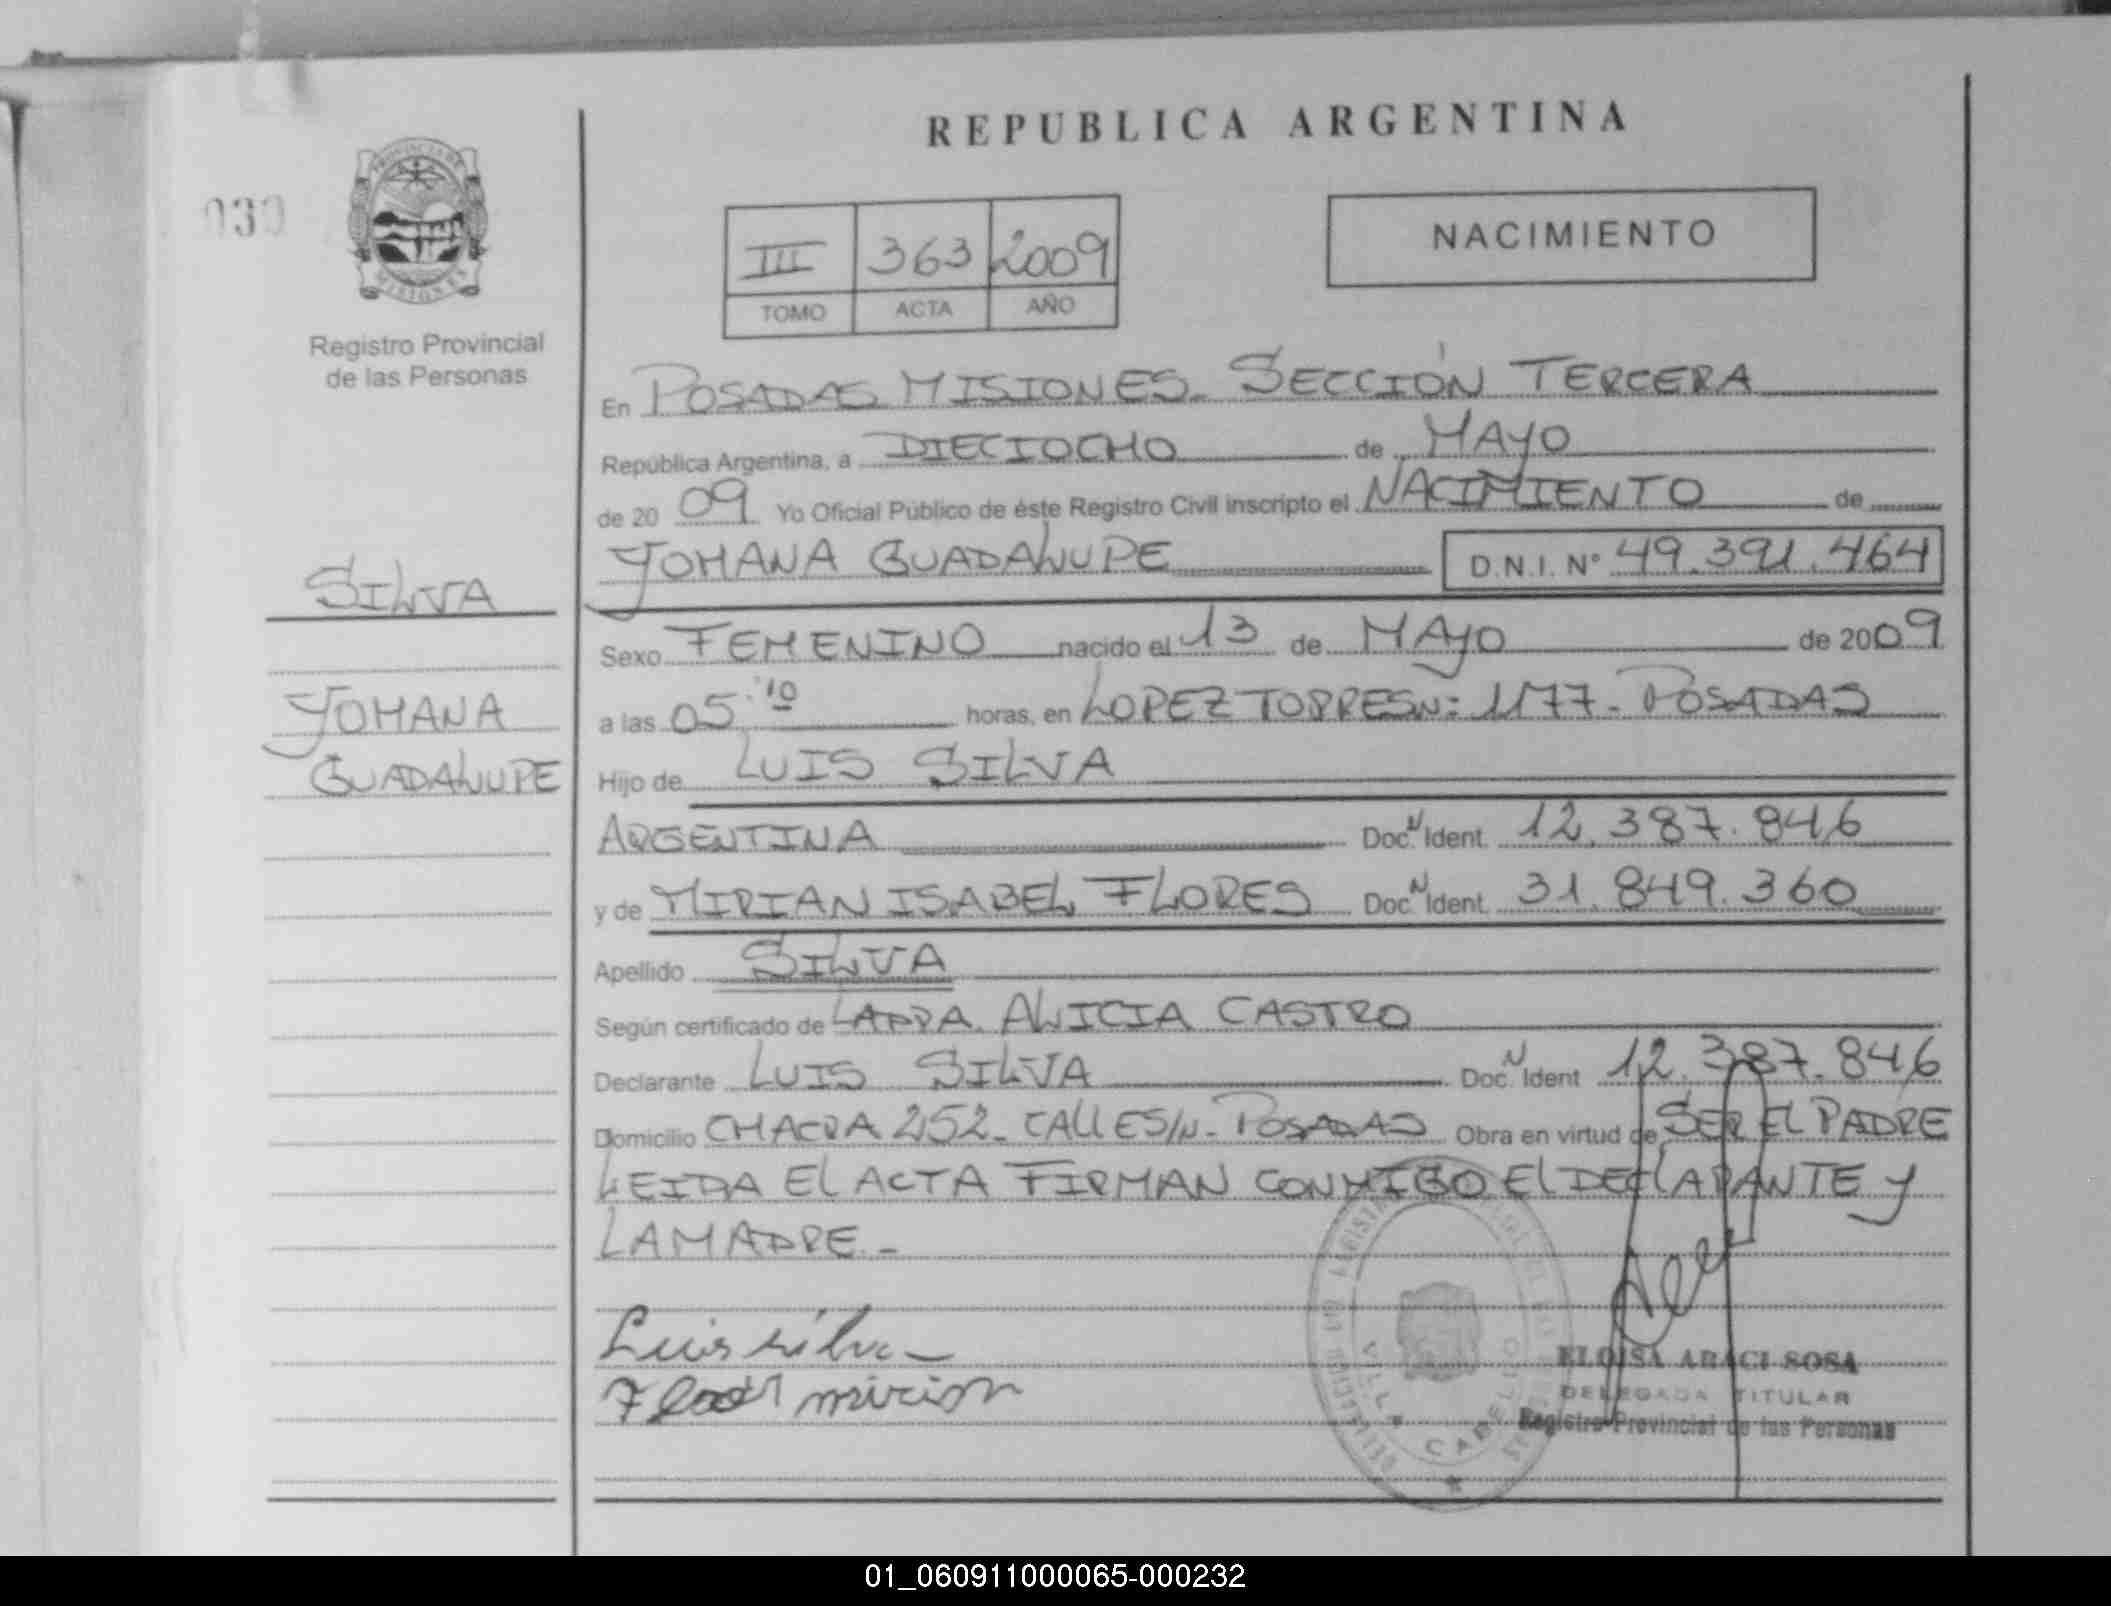 REPUBLICA ARGENTINA
030
PROVINCIA DE
MISIONES
Registro Provincial
de las Personas
III 363 2009
TOMO ACTA AÑO
NACIMIENTO
En POSADAS MISIONES. SECCIÓN TERCERA
República Argentina, a DIECIOCHO de MAYO
de 20 09 Yo Oficial Público de éste Registro Civil inscripto el NACIMIENTO de
YOHANA GUADALUPE D.N.I. N° 49.391.464
SILVA
YOHANA
GUADALUPE
Sexo FEMENINO nacido el 13 de MAYO de 2009
a las 05:10 horas, en LOPEZ TORRES N: 1177 - POSADAS
Hijo de LUIS SILVA
ARGENTINA Doc. N Ident. 12.387.846
y de MIRIAN ISABEL FLORES Doc. N Ident. 31.849.360
Apellido SILVA
Según certificado de LA DRA. ALICIA CASTRO
Declarante LUIS SILVA Doc. N Ident 12.387.846
Domicilio CHACRA 252 - CALLE S/N - POSADAS Obra en virtud de SER EL PADRE
LEIDA EL ACTA FIRMAN CONMIGO EL DECLARANTE Y
LA MADRE. -
Luis silva
mirian
VILLA CABELLO
ELOISA ARACI SOSA
DELEGADA TITULAR
Registro Provincial de las Personas
01_060911000065-000232